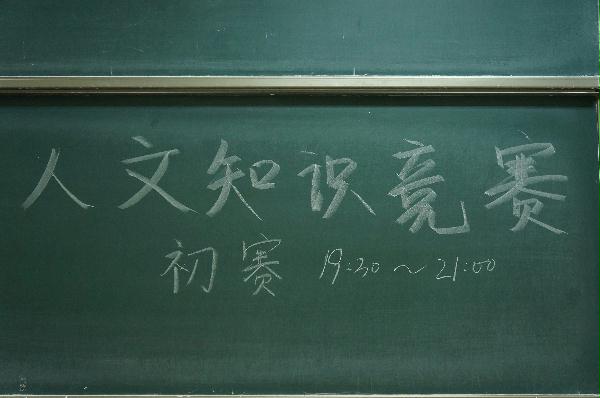 人文知识竞赛
初赛 19:30～21:00